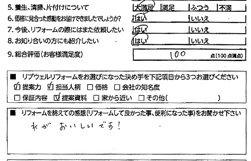 5. 養生、清掃、片付けについて 大満足 満足 ふつう 不満
6. 価格に見合った感動をお届けできましたでしょうか? はい いいえ
7. 今後、リフォームの際にはまた依頼したい はい いいえ
8. お知り合いの方にも紹介したい はい いいえ
9. 総合評価(お客様満足度) 100 点(100点満点)
■リブウェルリフォームをお選びになった決め手を下記項目から3つお選びください
☑提案力 ☑担当人柄 □価格 □会社の知名度
□保証内容 ☑提案資料 □家から近い □その他( )
■リフォームを終えての感想(リフォームして良かった事、便利になった事)をお聞かせ下さい
おいしいです!